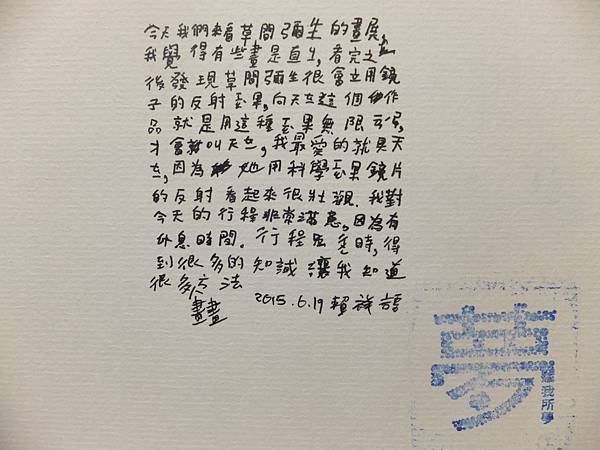 今天我們來看草間彌生的畫展,
我覺得有些畫是直 看完之
後發現草間彌生很會 用鏡
子的反射 果,向天 這個 作
品就是用這種 果無限
才會 叫天 ,我最愛的就是天
,因為 她用科學 果鏡片
的反射看起來很壯觀.我對
今天的行程非常滿意,因為有
休息時間。行程 時,得
到很多的知識讓我知道
很多方法
畫畫
2015.6.19賴
夢
我所